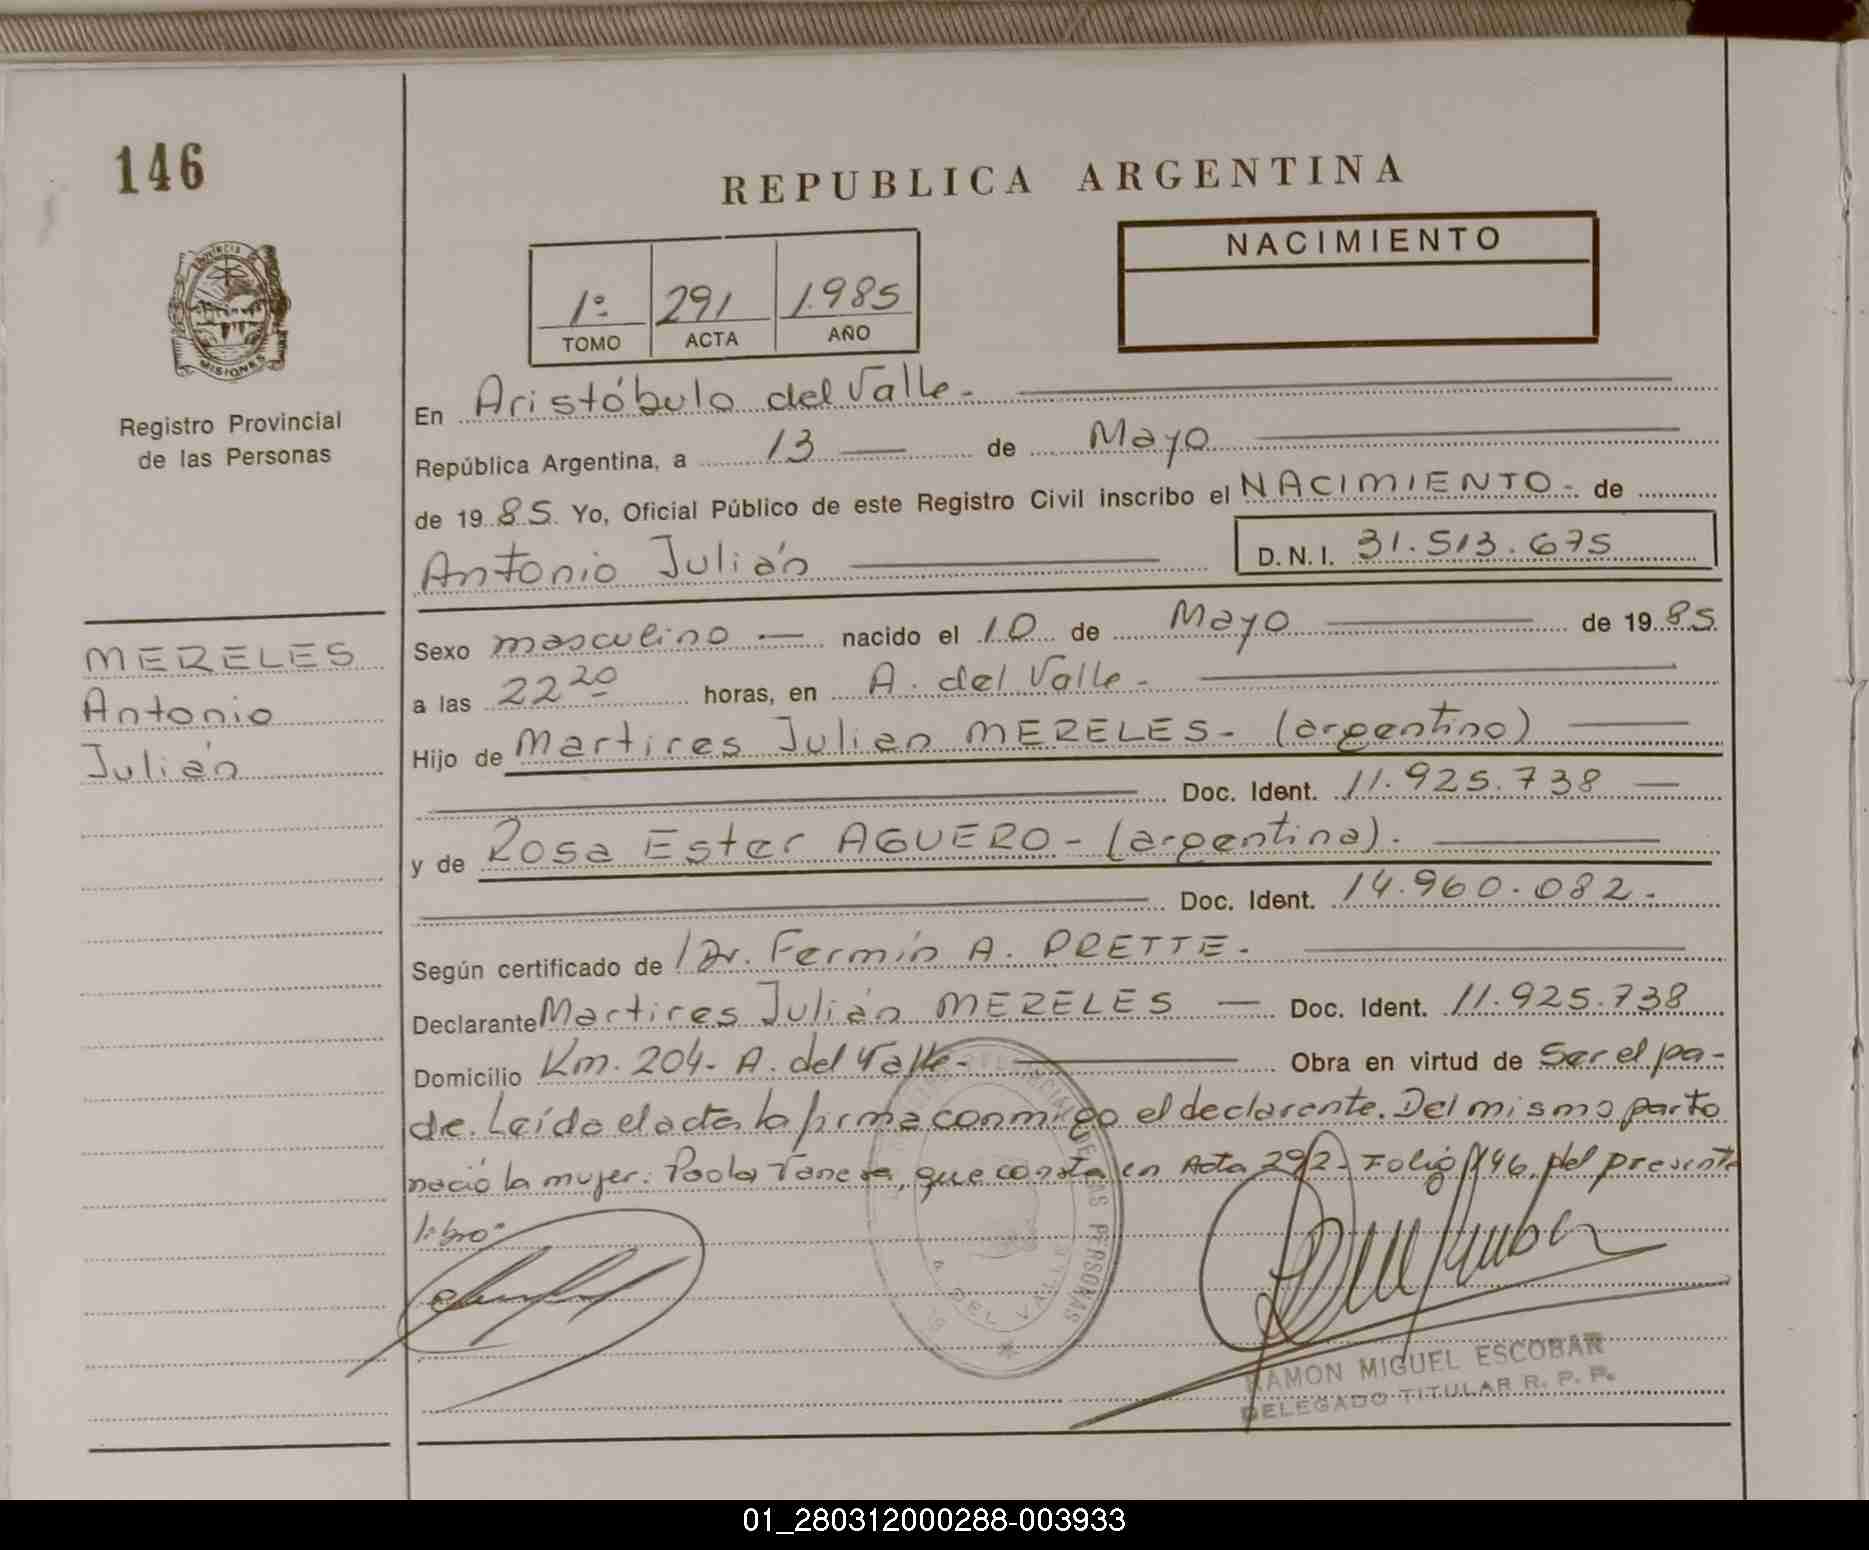 146
REPUBLICA ARGENTINA
PROVINCIA
MISIONES
Registro Provincial
de las Personas
1º 291 1.985
TOMO ACTA AÑO
NACIMIENTO
En Aristóbulo del Valle.-
República Argentina, a 13 de Mayo
de 19 85. Yo, Oficial Público de este Registro Civil inscribo el NACIMIENTO- de
Antonio Julián D.N.I. 31.513.675
MERELES
Antonio
Julián
Sexo masculino nacido el 10 de Mayo de 19 85.
a las 22 20 horas, en A. del Valle-
Hijo de Martires Julian MERELES- (argentino)
Doc. Ident. 11.925.738
y de Rosa Ester AGUERO- (argentina).
Doc. Ident. 14.960.082.
Según certificado de Dr. Fermín A. PRETTE.
Declarante Martires Julián MERELES Doc. Ident. 11.925.738
Domicilio Km. 204- A. del Valle- Obra en virtud de Ser el pa-
de. Leída el acta la firma conmigo el declarante. Del mismo parto
nació la mujer: Paola Vanesa, que consta en Acta 292- Folio 146, del presente
libro-
DE LAS PERSONAS
A. DEL VALLE
RAMON MIGUEL ESCOBAR
DELEGADO TITULAR R. P. P.
01_280312000288-003933